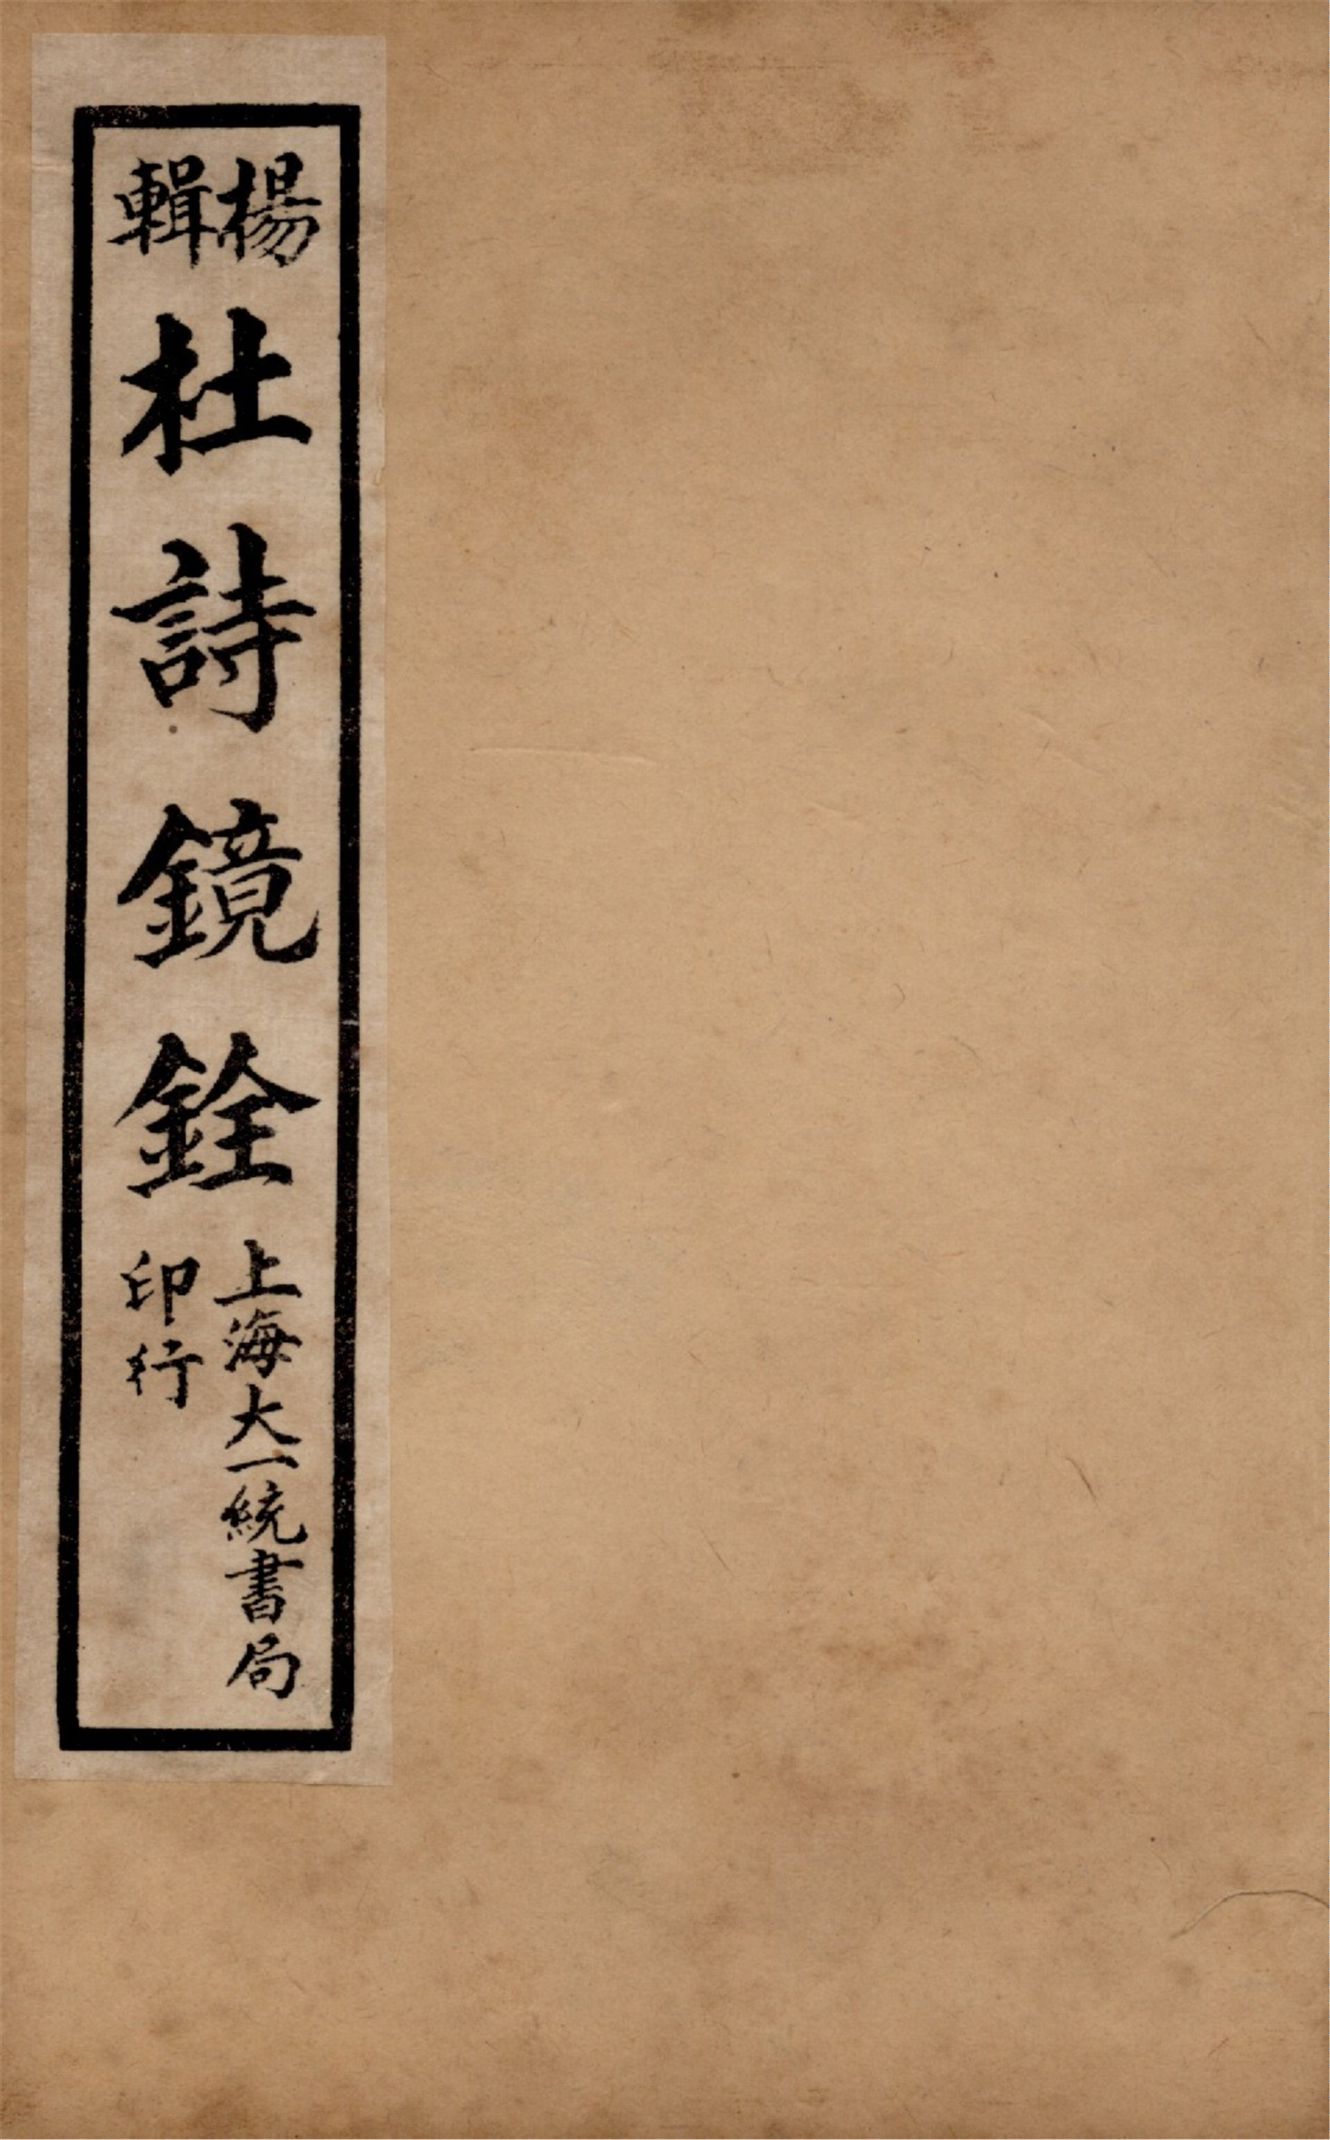 楊輯
杜詩鏡銓
上海大一統書局
印行